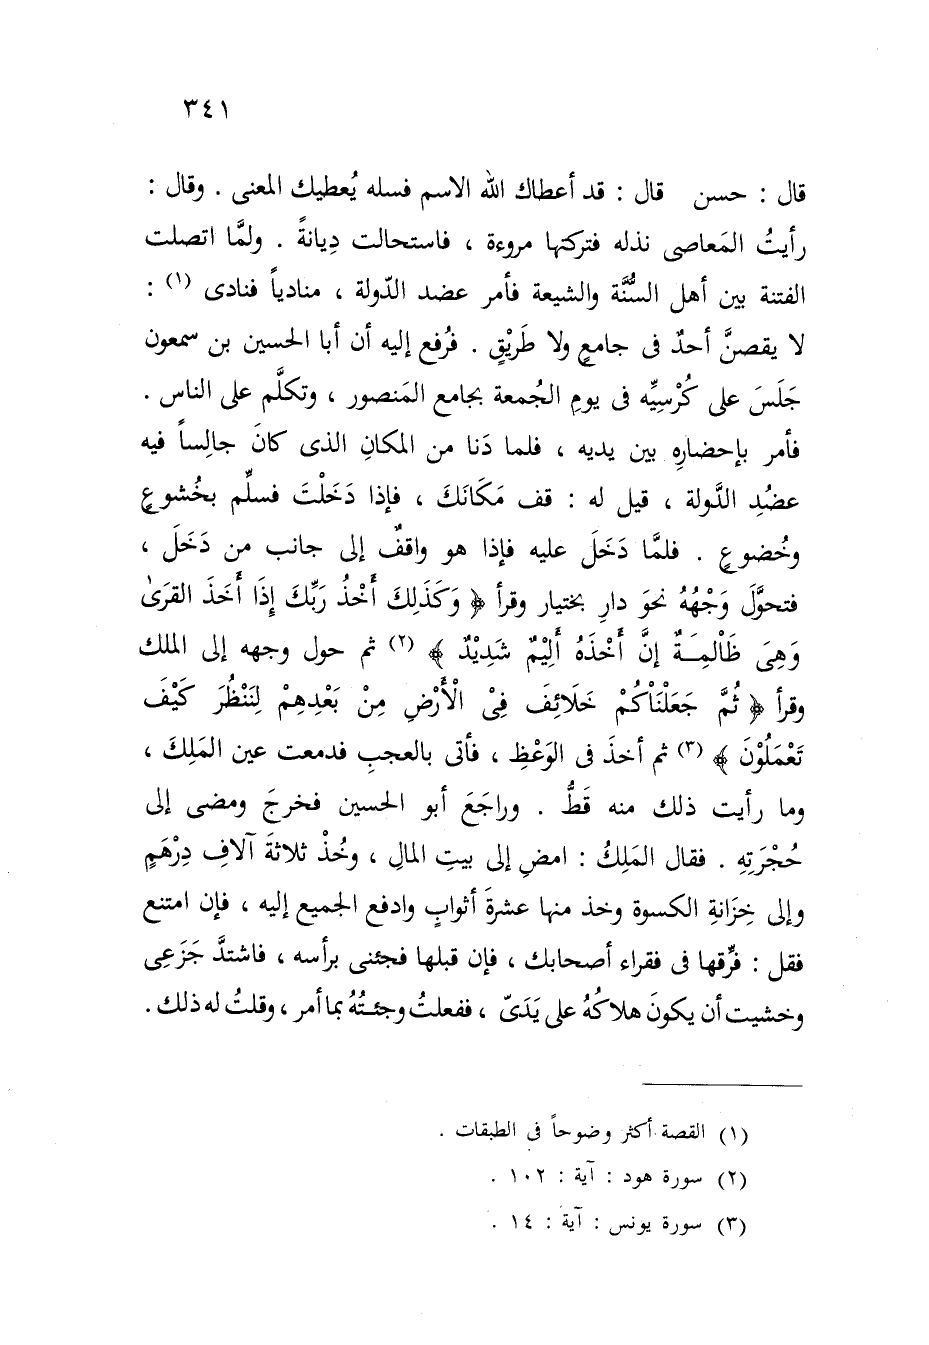 ٣٤١
قال : حسن قال : قد أعطاك الله الاسم فسله يُعطيك المعنى . وقال :
رأيتُ المَعاصى نذله فتركتها مروءة ، فاستحالت دِيانةً . ولمَّا اتصلت
الفتنة بين أهل السُّنَّة والشيعة فأمر عضد الدّولة ، منادياً فنادى (١) :
لا يقصنَّ أحدٌ فى جامعٍ ولا طَرِيْقٍ . فرُفع إليه أن أبا الحسين بن سمعون
جَلَسَ على كُرْسِيِّه فى يومِ الجُمعة بجامع المَنصور ، وتكلَّم على الناس .
فأمر بإحضارِه بين يديه ، فلما دَنا من المكانِ الذى كانَ جالِساً فيه
عضُدِ الدَّولة ، قيل له : قف مَكَانَكَ ، فإذا دَخَلْتَ فسلِّم بخُشوعٍ
وخُضوعٍ . فلمَّا دَخَلَ عليه فإذا هو واقفٌ إلى جانب من دَخَلَ ،
فتحوَّل وَجْهُهُ نحوَ دارِ بختيار وقرأ ﴿ وَكَذَلِكَ أَخْذُ رَبِّكَ إِذَا أَخَذَ القرَىٰ
وَهِىَ ظَاْلِمَةٌ إنَّ أَخْذَهُ أَلِيْمٌ شَدِيْدٌ ﴾ (٢) ثم حول وجهه إلى الملك
وقرأ ﴿ ثُمَّ جَعَلْنَاْكُمْ خَلَائِفَ فِىْ الْأَرْضِ مِنْ بَعْدِهِمْ لِنَنْظُرَ كَيْفَ
تَعْمَلُوْنَ ﴾ (٣) ثم أخذَ فى الوَعْظِ ، فأتى بالعجبِ فدمعت عين المَلِكَ ،
وما رأيت ذلك منه قَطُّ . وراجَعَ أبو الحسين فخرجَ ومضى إلى
حُجْرَتِهِ . فقال المَلِكُ : امضِ إلى بيتِ المالِ ، وخُذْ ثلاثةَ آلافِ دِرْهَمٍ
وإلى خِزَانةِ الكسوة وخذ منها عشرةَ أثوابٍ وادفع الجميع إليه ، فإن امتنع
فقل : فرِّقها فى فقراء أصحابك ، فإن قبلها فجئنى برأسه ، فاشتدَّ جَزَعِى
وخشيت أن يكونَ هلاكُهُ على يَدَىّ ، ففعلتُ وجئتُهُ بما أمر ، وقلتُ له ذلك .
(١) القصة أكثر وضوحاً فى الطبقات .
(٢) سورة هود : آية : ١٠٢ .
(٣) سورة يونس : آية : ١٤ .